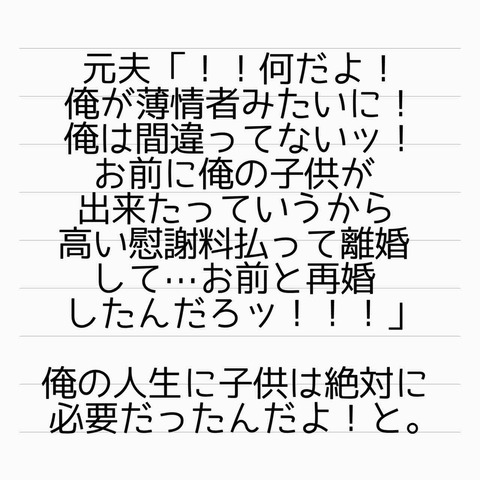 元夫「！！何だよ！
俺が薄情者みたいに！
俺は間違ってないッ！
お前に俺の子供が
出来たっていうから
高い慰謝料払って離婚
して…お前と再婚
したんだろッ！！！」
俺の人生に子供は絶対に
必要だったんだよ！と。